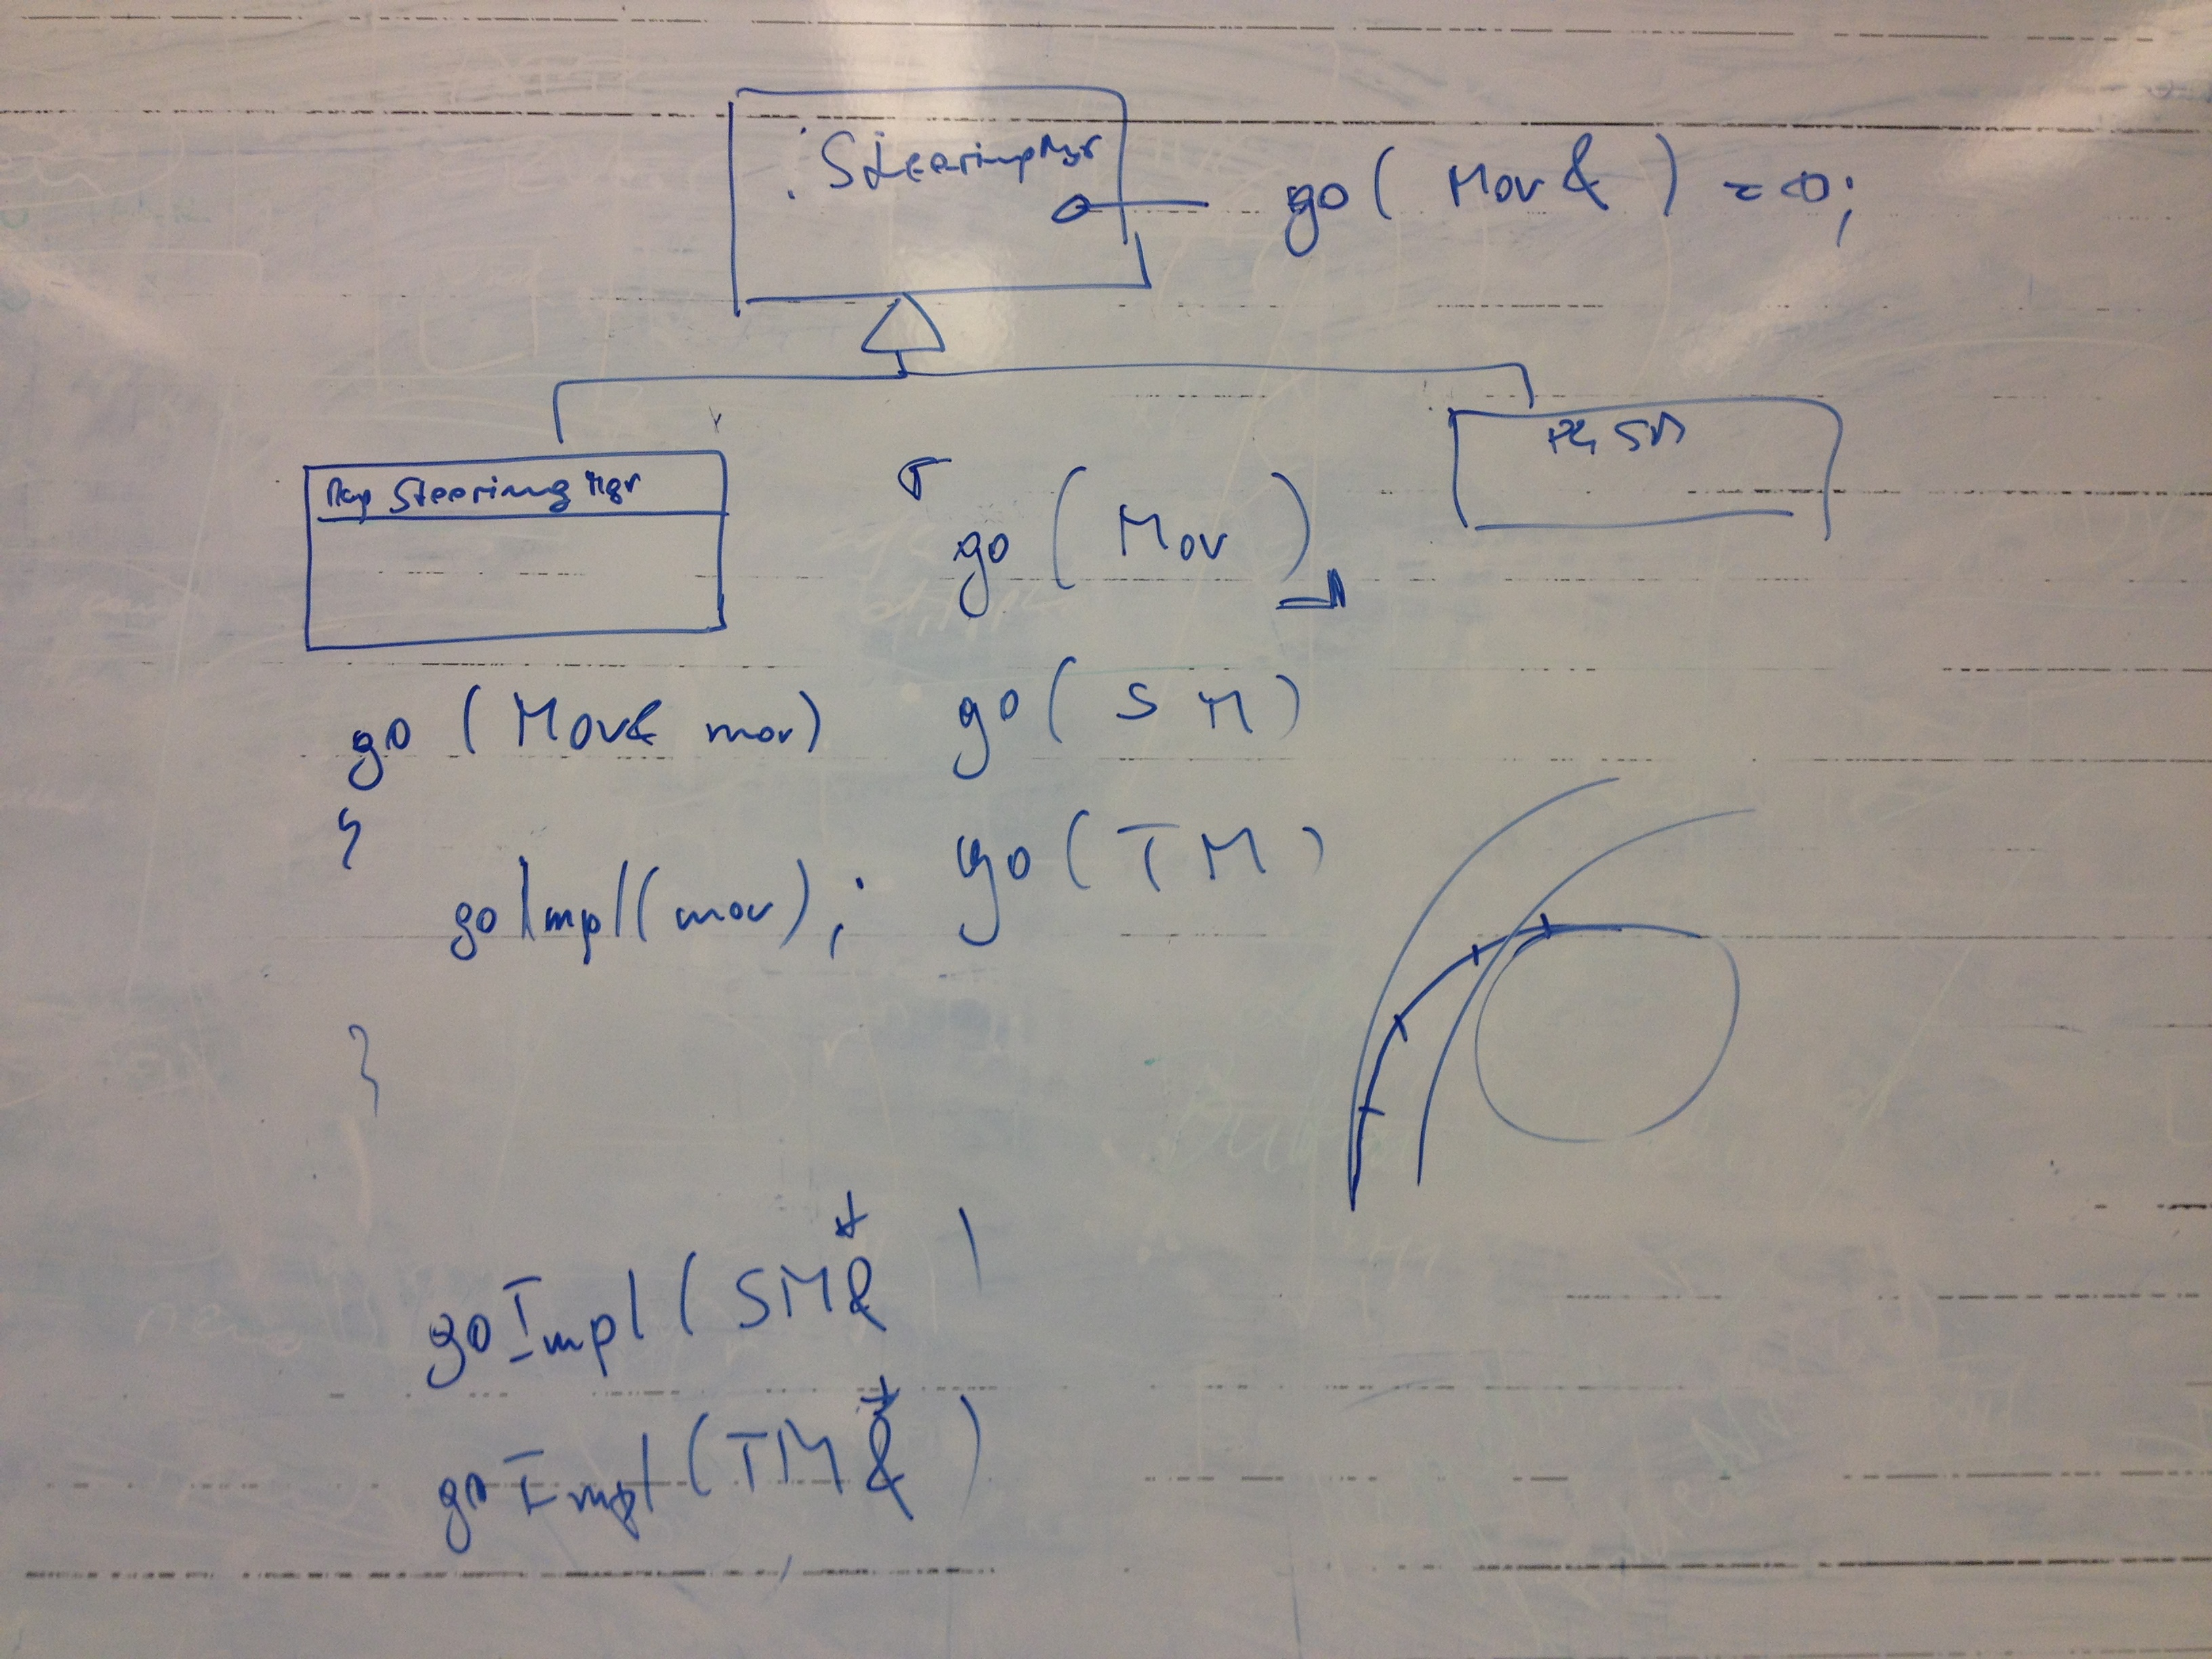 SteeringMgr
go ( Mov& ) = 0;
SteeringMgr
go ( Mov )
go ( Mov& mov)
go ( SM )
{
go ( TM )
goImpl(mov);
}
goImpl ( SM& )
goImpl ( TM& )